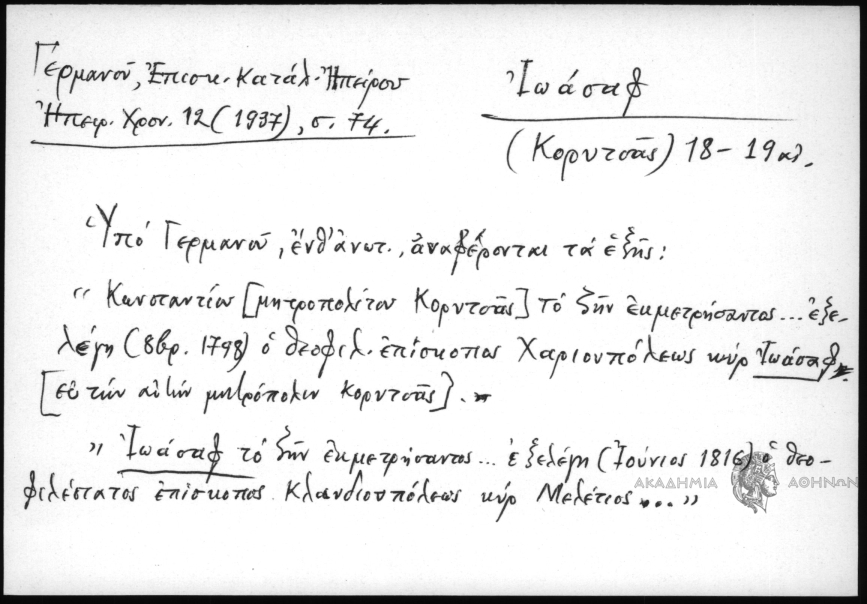 Γερμανοῦ, Ἐπισκ. Κατάλ. Ἠπείρου
Ἠπειρ. Χρον. 12 (1937), σ. 74.
Ἰωάσαφ
(Κορυτσᾶς) 18 - 19 αἰ.
Ὑπό Γερμανοῦ, ἔνθ' ἀνωτ., ἀναφέρονται τά ἑξῆς:
"Κωνσταντίου [μητροπολίτου Κορυτσᾶς] τό ζῆν ἐκμετρήσαντος... ἐξε-
λέγη (8βρ. 1798) ὁ θεοφιλ. ἐπίσκοπος Χαριουπόλεως κύρ Ἰωάσαφ
[εἰς τήν αὐτήν μητρόπολιν Κορυτσᾶς]."
"Ἰωάσαφ τό ζῆν ἐκμετρήσαντος... ἐξελέγη (Ἰούνιος 1816) ὁ θεο-
φιλέστατος ἐπίσκοπος Κλαυδιουπόλεως κύρ Μελέτιος..."
ΑΚΑΔΗΜΙΑ ΑΘΗΝΩΝ